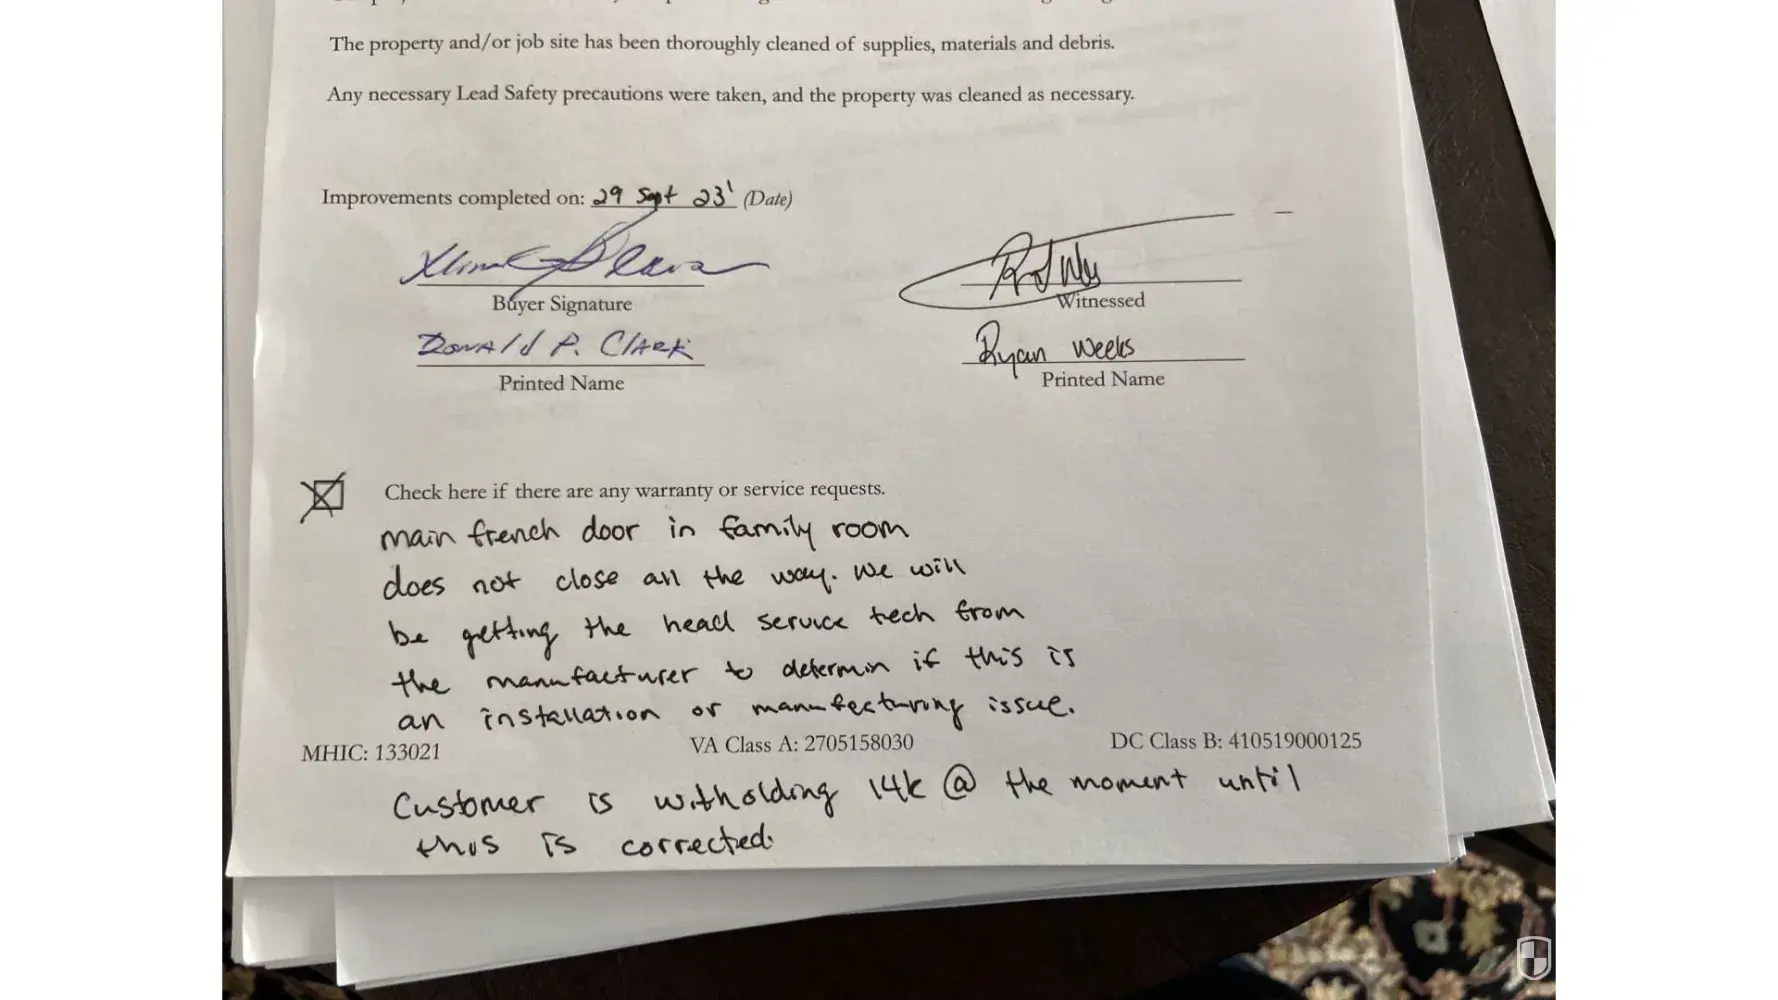 The property and/or job site has been thoroughly cleaned of supplies, materials and debris.
Any necessary Lead Safety precautions were taken, and the property was cleaned as necessary.
Improvements completed on: 29 Sept 23' (Date)
Buyer Signature
Witnessed
Donald P. Clark
Ryan Weeks
Printed Name
Printed Name
Check here if there are any warranty or service requests.
main french door in family room
does not close all the way. We will
be getting the head service tech from
the manufacturer to determin if this is
an installation or manufacturing issue.
MHIC: 133021 VA Class A: 2705158030 DC Class B: 410519000125
Customer is witholding 14k @ the moment until
this is corrected.